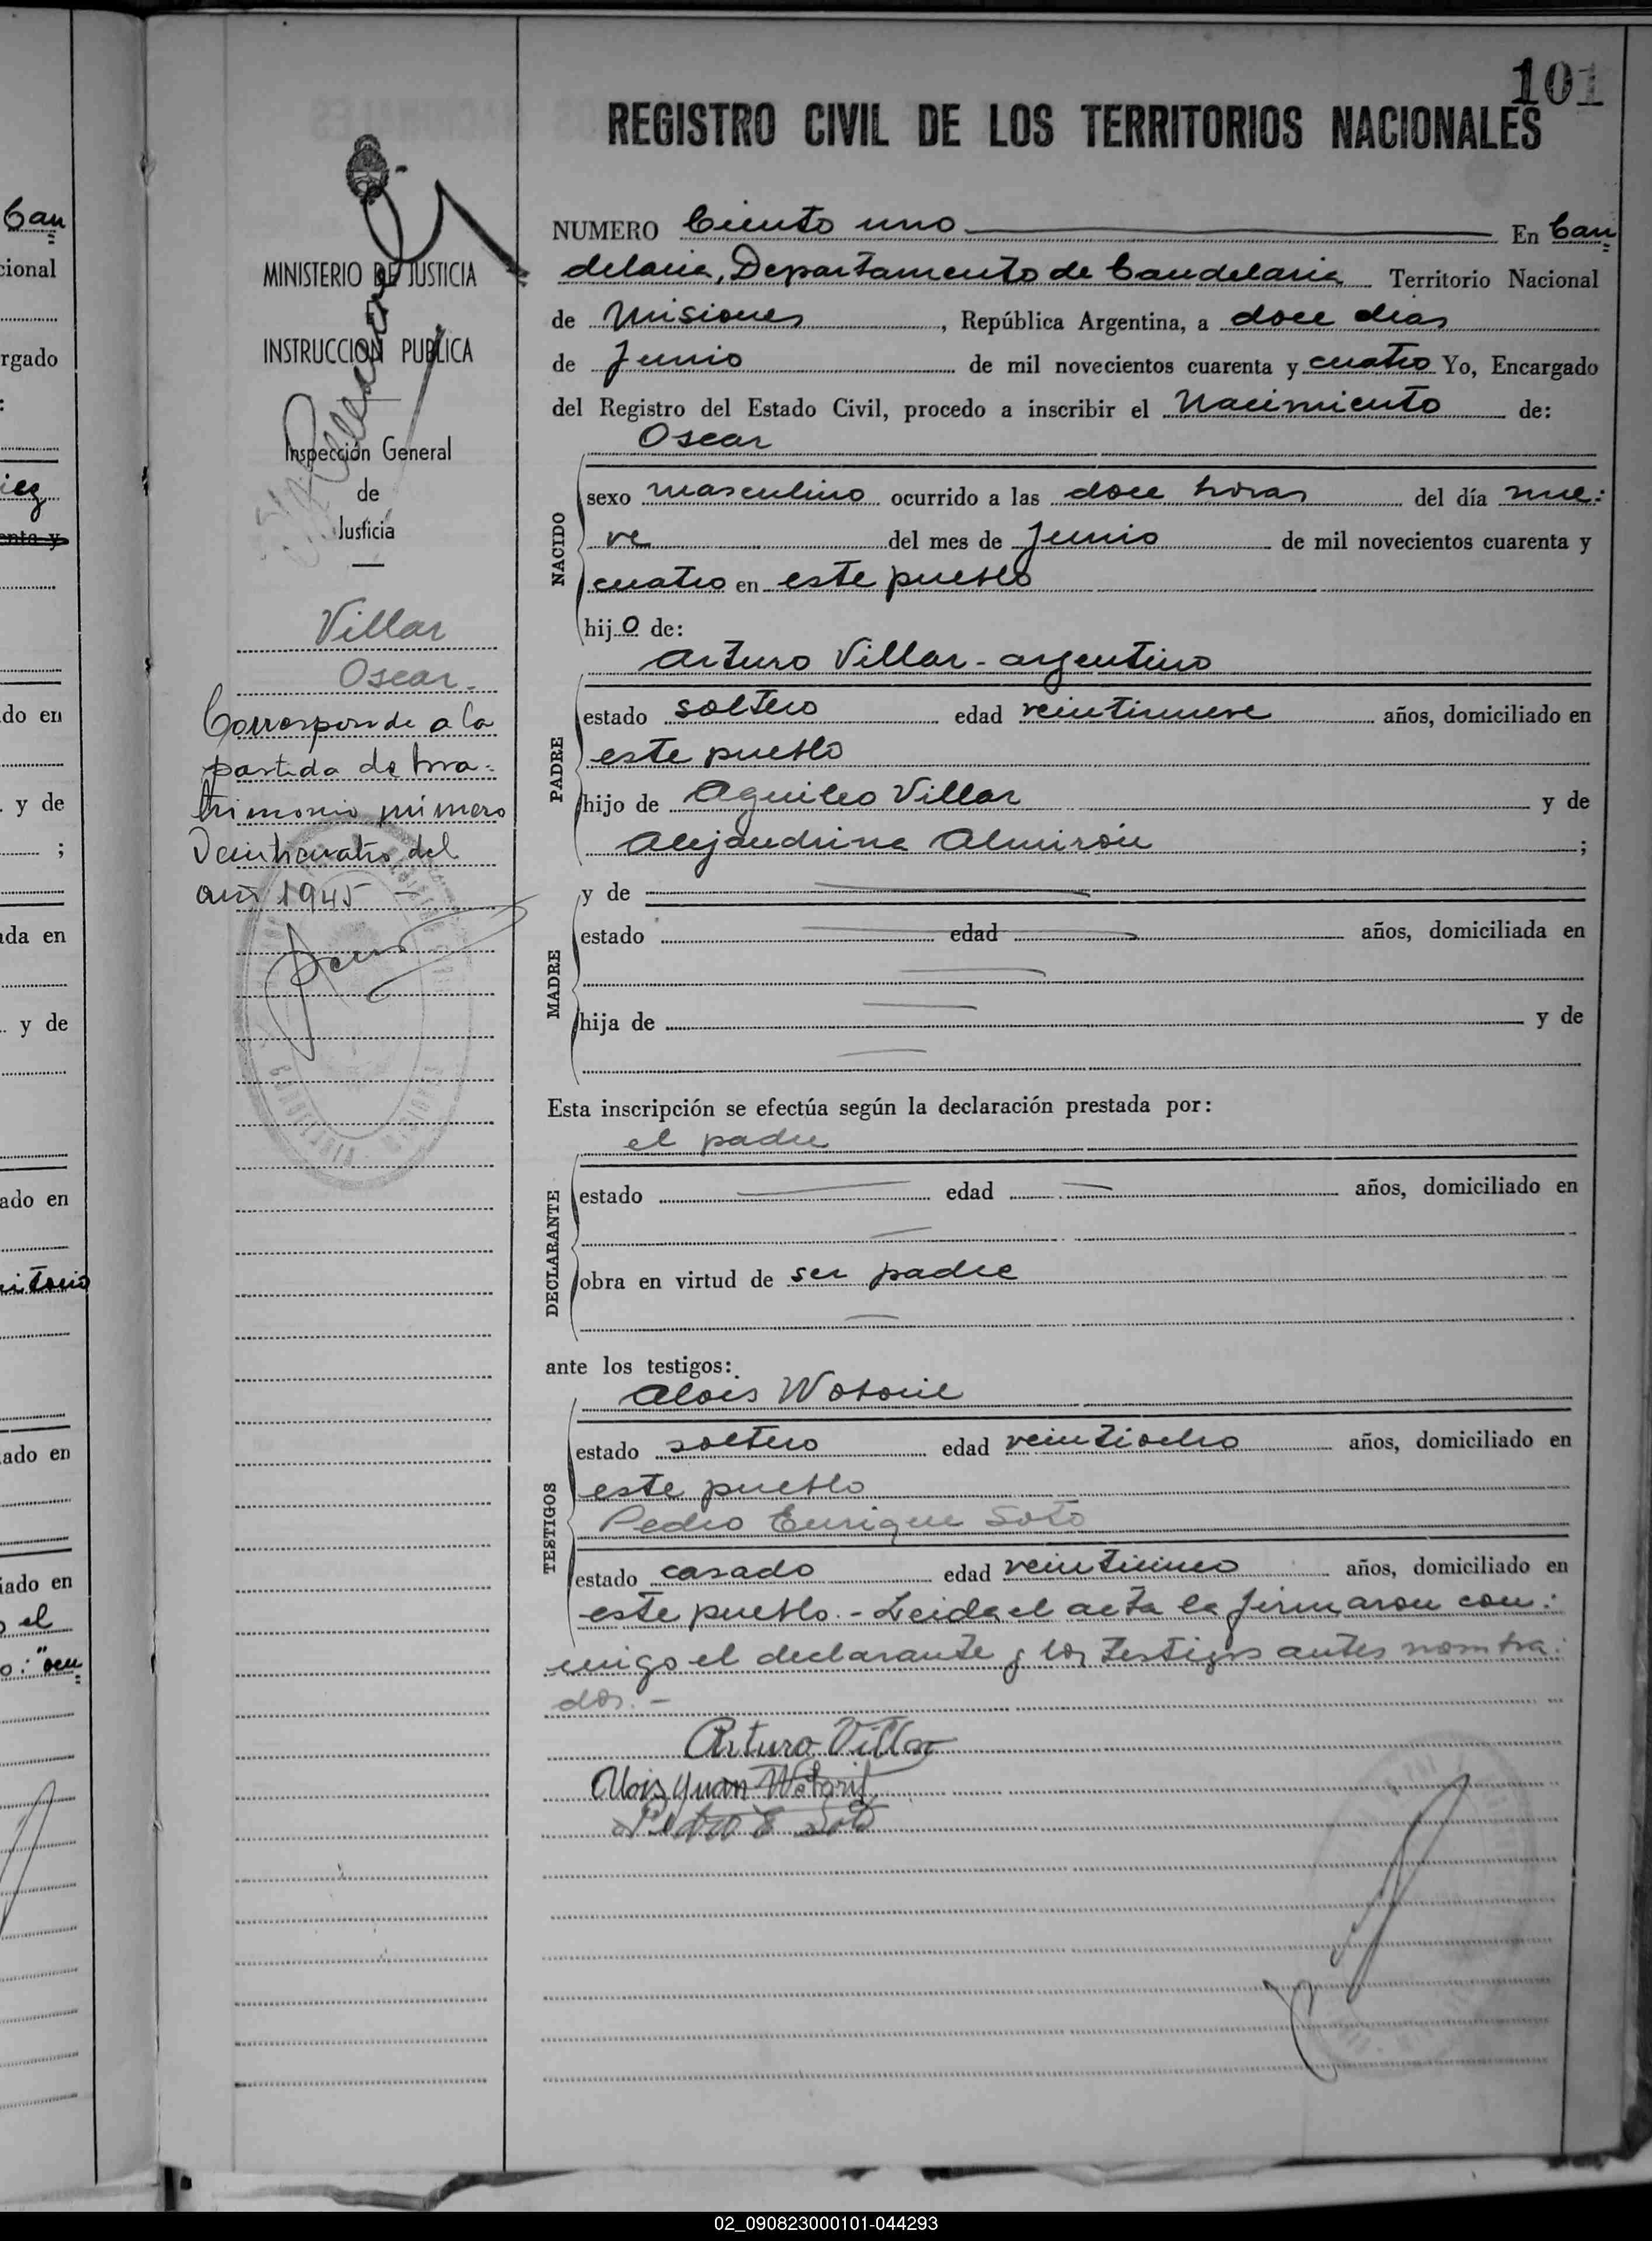 101
REGISTRO CIVIL DE LOS TERRITORIOS NACIONALES
MINISTERIO DE JUSTICIA
INSTRUCCION PUBLICA
Inspección General
de
Justicia
Villar
Oscar.
Corresponde a la
partida de ma-
trimonio número
Veinticuatro del
año 1945
NUMERO Ciento uno En Can
delaria, Departamento de Candelaria Territorio Nacional
de Misiones, República Argentina, a doce dias
de Junio de mil novecientos cuarenta y cuatro Yo, Encargado
del Registro del Estado Civil, procedo a inscribir el Nacimiento de:
Oscar
NACIDO
sexo masculino ocurrido a las doce horas del día nue:
ve del mes de Junio de mil novecientos cuarenta y
cuatro en este pueblo
hijo de:
Arturo Villar - argentino
PADRE
estado soltero edad veintinueve años, domiciliado en
este pueblo
hijo de Aquileo Villar y de
Alejandrina Almirón ;
y de
MADRE
estado edad años, domiciliada en
hija de y de
Esta inscripción se efectúa según la declaración prestada por:
el padre
DECLARANTE
estado edad años, domiciliado en
obra en virtud de ser padre
ante los testigos:
Alois
TESTIGOS
estado soltero edad veintiocho años, domiciliado en
este pueblo
Pedro Enrique Soto
estado casado edad años, domiciliado en
este pueblo.- Leida el acta la firmaron con:
migo el declarante y los testigos antes nombra:
dos.-
Arturo Villar
Alois Juan
Pedro E Soto
CANDELARIA MISIONES
Can
cional
rgado
:
iez
enta y
do en
y de
;
ada en
y de
ado en
itorio
ado en
iado en
o el
02_090823000101-044293